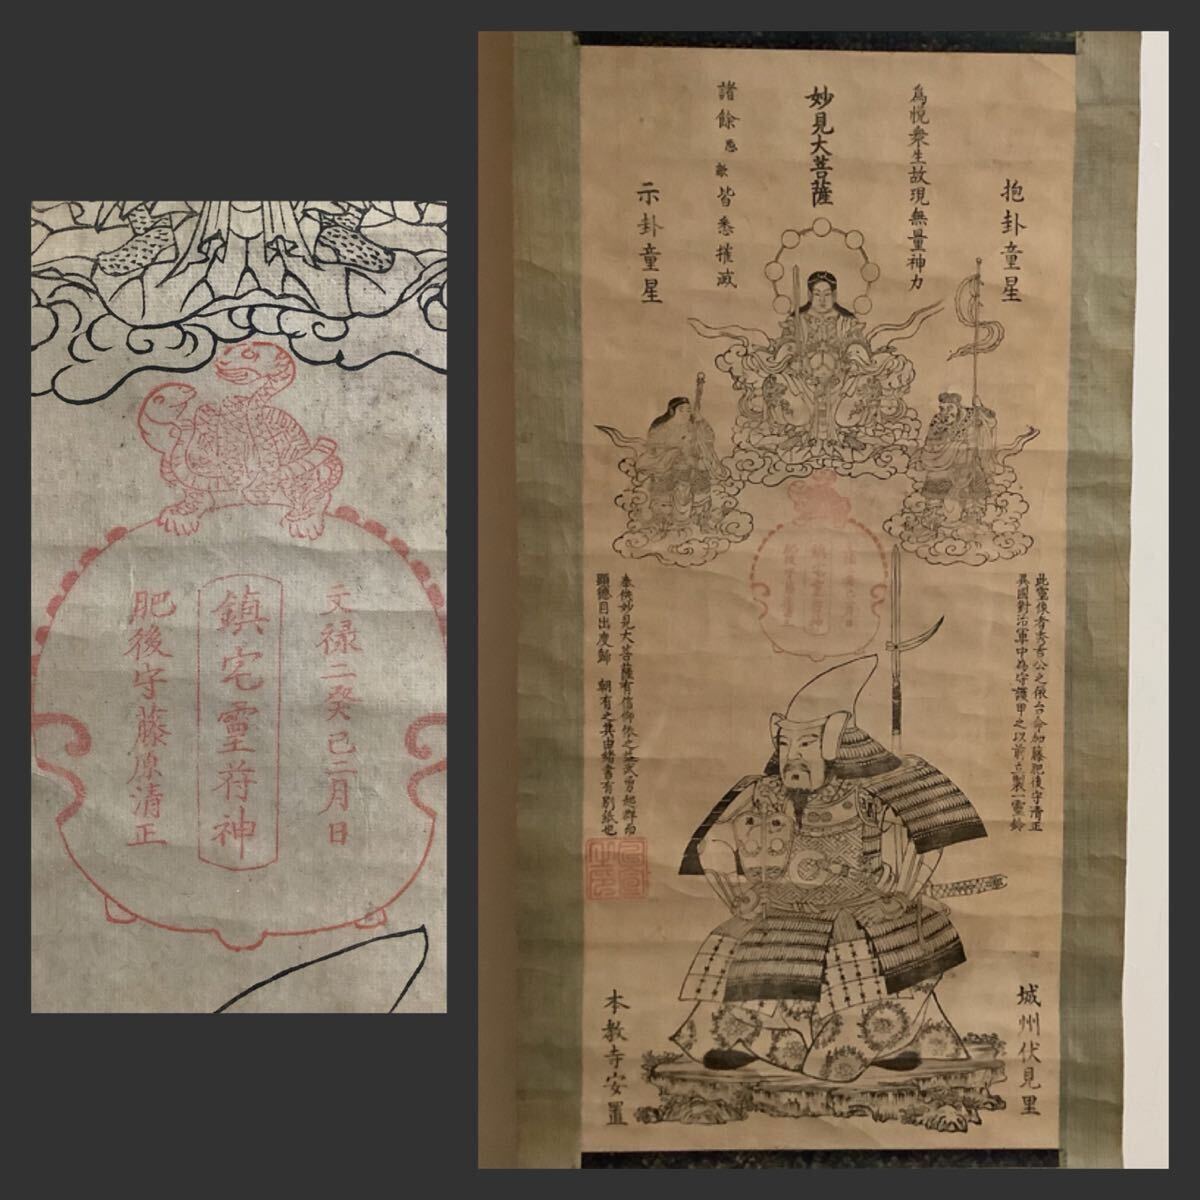 文禄二癸巳二月日
鎮宅霊符神
肥後守藤原清正
抱卦童星
為悦衆生故現無量神力
妙見大菩薩
諸餘怨敵皆悉摧滅
示卦童星
此霊像者秀吉公之依台命加藤肥後守清正
異國對治軍中為守護甲之以前立製一霊鈴
奉供妙見大菩薩有信仰依之益武勇超群而
顕徳目出度歸 朝有之其由緒書有別紙也
城州伏見里
本教寺安置